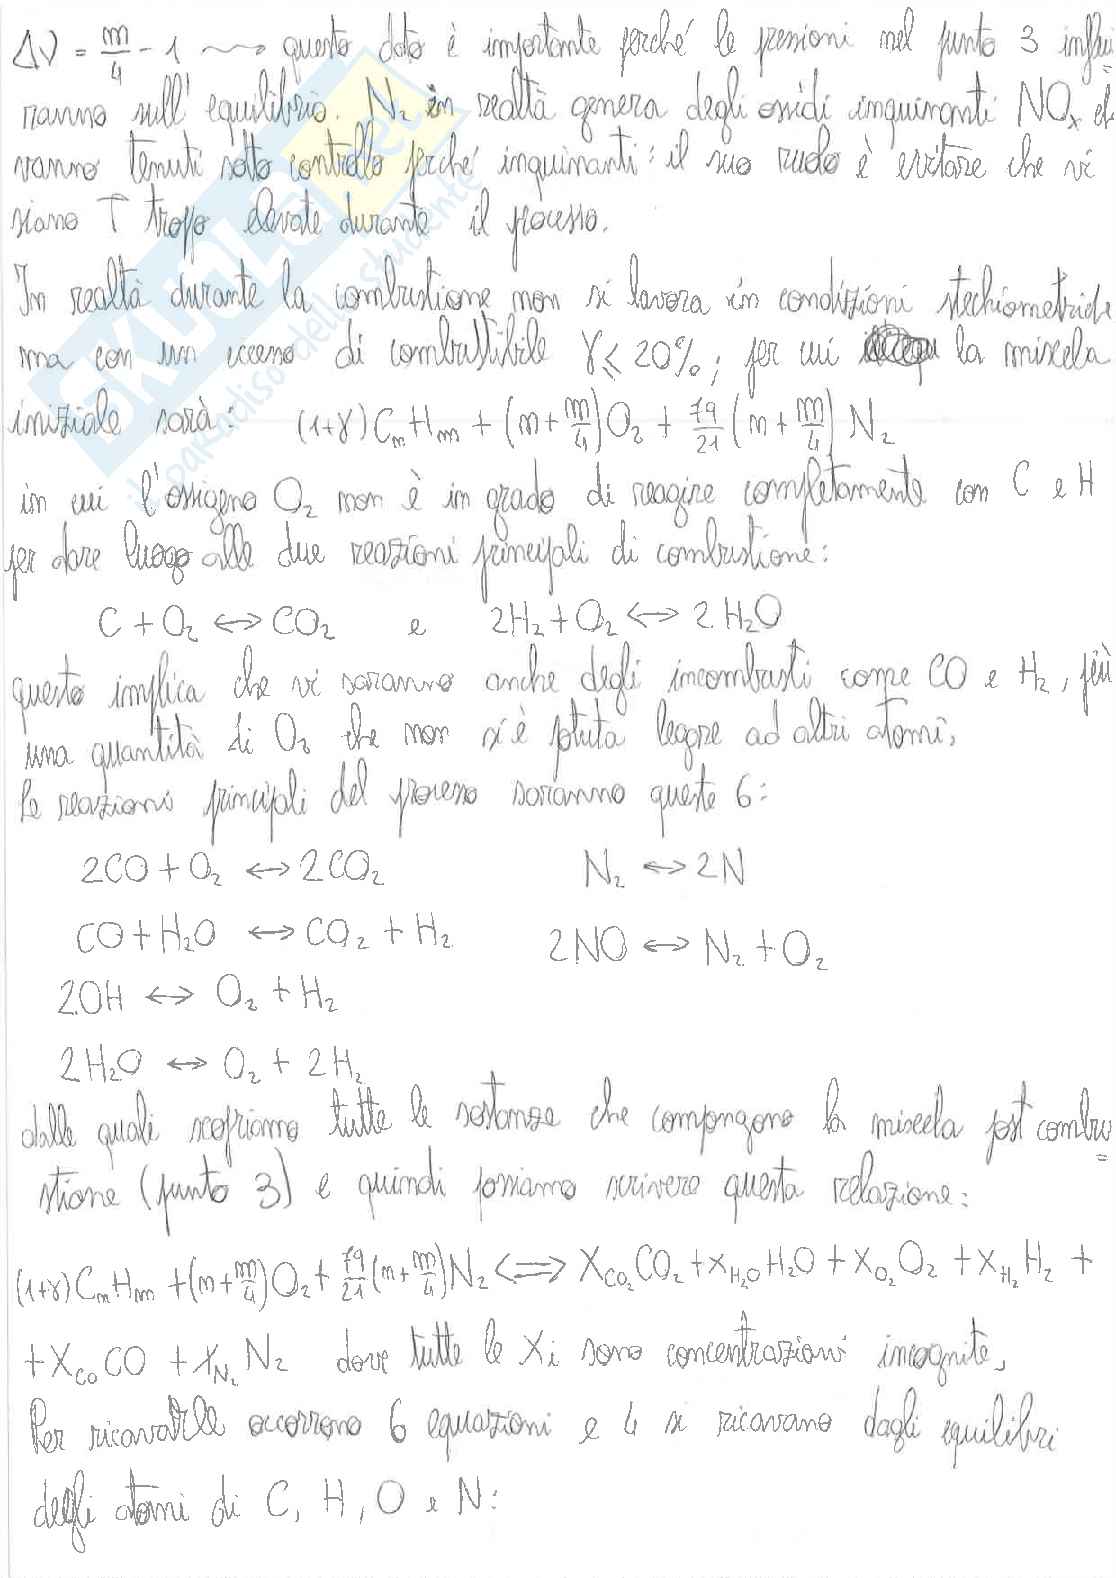 Δν = m/4 - 1 ⇝ questo dato è importante perché le pressioni nel punto 3 influi=
ranno sull'equilibrio. N₂ in realtà genera degli ossidi inquinanti NOₓ e
vanno tenuti sotto controllo perché inquinanti: il suo ruolo è evitare che vi
siano T troppo elevate durante il processo.
In realtà durante la combustione non si lavora in condizioni stechiometriche
ma con un eccesso di combustibile γ ≤ 20%; per cui la miscela
iniziale sarà: (1+γ)CₙHₘ + (n + m/4)O₂ + 79/21 (n + m/4) N₂
in cui l'ossigeno O₂ non è in grado di reagire completamente con C e H
per dare luogo alle due reazioni principali di combustione:
C + O₂ ⟷ CO₂ e 2H₂ + O₂ ⟷ 2H₂O
questo implica che vi saranno anche degli incombusti come CO e H₂, più
una quantità di O₂ che non si è potuta legare ad altri atomi,
Le reazioni principali del processo saranno queste 6:
2CO + O₂ ⟷ 2CO₂ N₂ ⟷ 2N
CO + H₂O ⟷ CO₂ + H₂ 2NO ⟷ N₂ + O₂
2OH ⟷ O₂ + H₂
2H₂O ⟷ O₂ + 2H₂
dalle quali scopriamo tutte le sostanze che compongono la miscela post combu=
stione (punto 3) e quindi possiamo scrivere questa relazione:
(1+γ)CₙHₘ + (n + m/4)O₂ + 79/21 (n + m/4)N₂ ⟺ X_CO₂ CO₂ + X_H₂O H₂O + X_O₂ O₂ + X_H₂ H₂ +
+ X_CO CO + X_N₂ N₂ dove tutte le Xi sono concentrazioni incognite,
Per ricavarle occorrono 6 equazioni e 4 si ricavano dagli equilibri
degli atomi di C, H, O e N:
SKUOLA.net
il paradiso dello studente